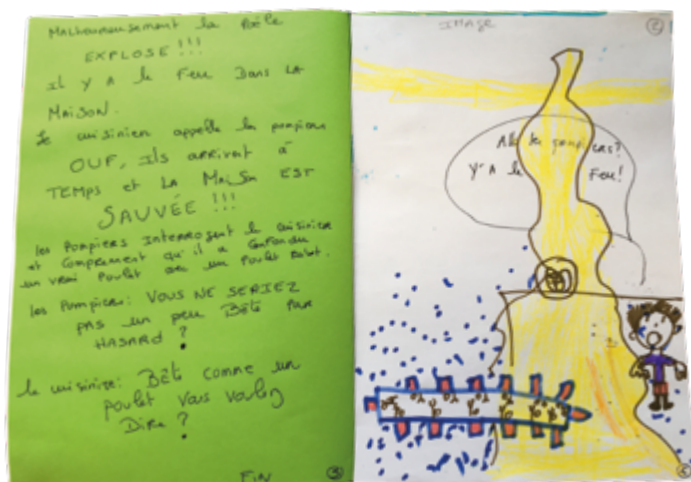 MALHEUREUSEMENT LA POÊLE
EXPLOSE !!!
IL Y A LE FEU DANS LA
MAISON.
LE cuisinier appelle les pompiers
OUF, ILS ARRIVENT À
TEMPS ET LA MAISON EST
SAUVÉE !!!
les POMPIERS INTERROGENT le cuisinier
et comprennent qu'il a confondu
un vrai Poulet avec un Poulet Robot.
les Pompiers: VOUS NE SERIEZ
PAS un peu BÊTE PAR
HASARD ?
le cuisinier: BÊTE comme un
poulet vous voulez
DIRE ?
FIN
IMAGE
Allo les pompiers?
Y'A le Feu!